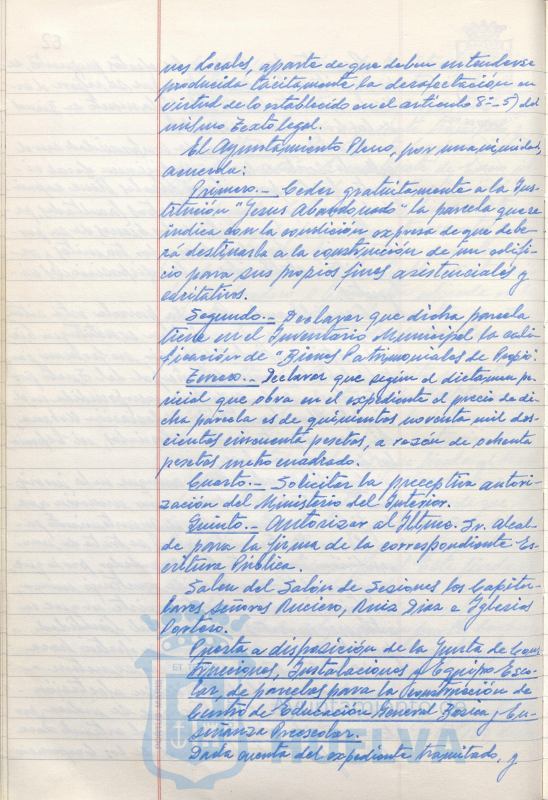 nes Locales, aparte de que deben entenderse
producida tácitamente la desafectación en
virtud de lo establecido en el artículo 8º-5) del
mismo Texto legal.
El Ayuntamiento Pleno, por unanimidad,
acuerda:
Primero.- Ceder gratuitamente a la Ins-
titución "Jesus Abandonado" la parcela que se
indica con la condición expresa de que debe-
rá destinarla a la construcción de un edifi-
cio para sus propios fines asistenciales y
caritativos.
Segundo.- Declarar que dicha parcela
tiene en el Inventario Municipal la cali-
ficación de "Bienes Patrimoniales de Propio".
Tercero.- Declarar que según el dictamen pe-
ricial que obra en el expediente el precio de di-
cha parcela es de quinientos noventa mil dos-
cientas cincuenta pesetas, a razón de ochenta
pesetas metro cuadrado.
Cuarto.- Solicitar la preceptiva autori-
zación del Ministerio del Interior.
Quinto.- Autorizar al Iltmo. Sr. Alcal-
de para la firma de la correspondiente Es-
critura Pública.
Salen del Salón de Sesiones los Capitu-
lares señores Ruciero, Ruiz Diaz e Iglesias
Portero.
Puesta a disposición de la Junta de Cons-
trucciones, Instalaciones y Equipo Esco-
lar, de parcelas para la construcción de
Centro de Educación General Básica y En-
señanza Preescolar.
Dada cuenta del expediente tramitado, y
Ayuntamiento de
HUELVA